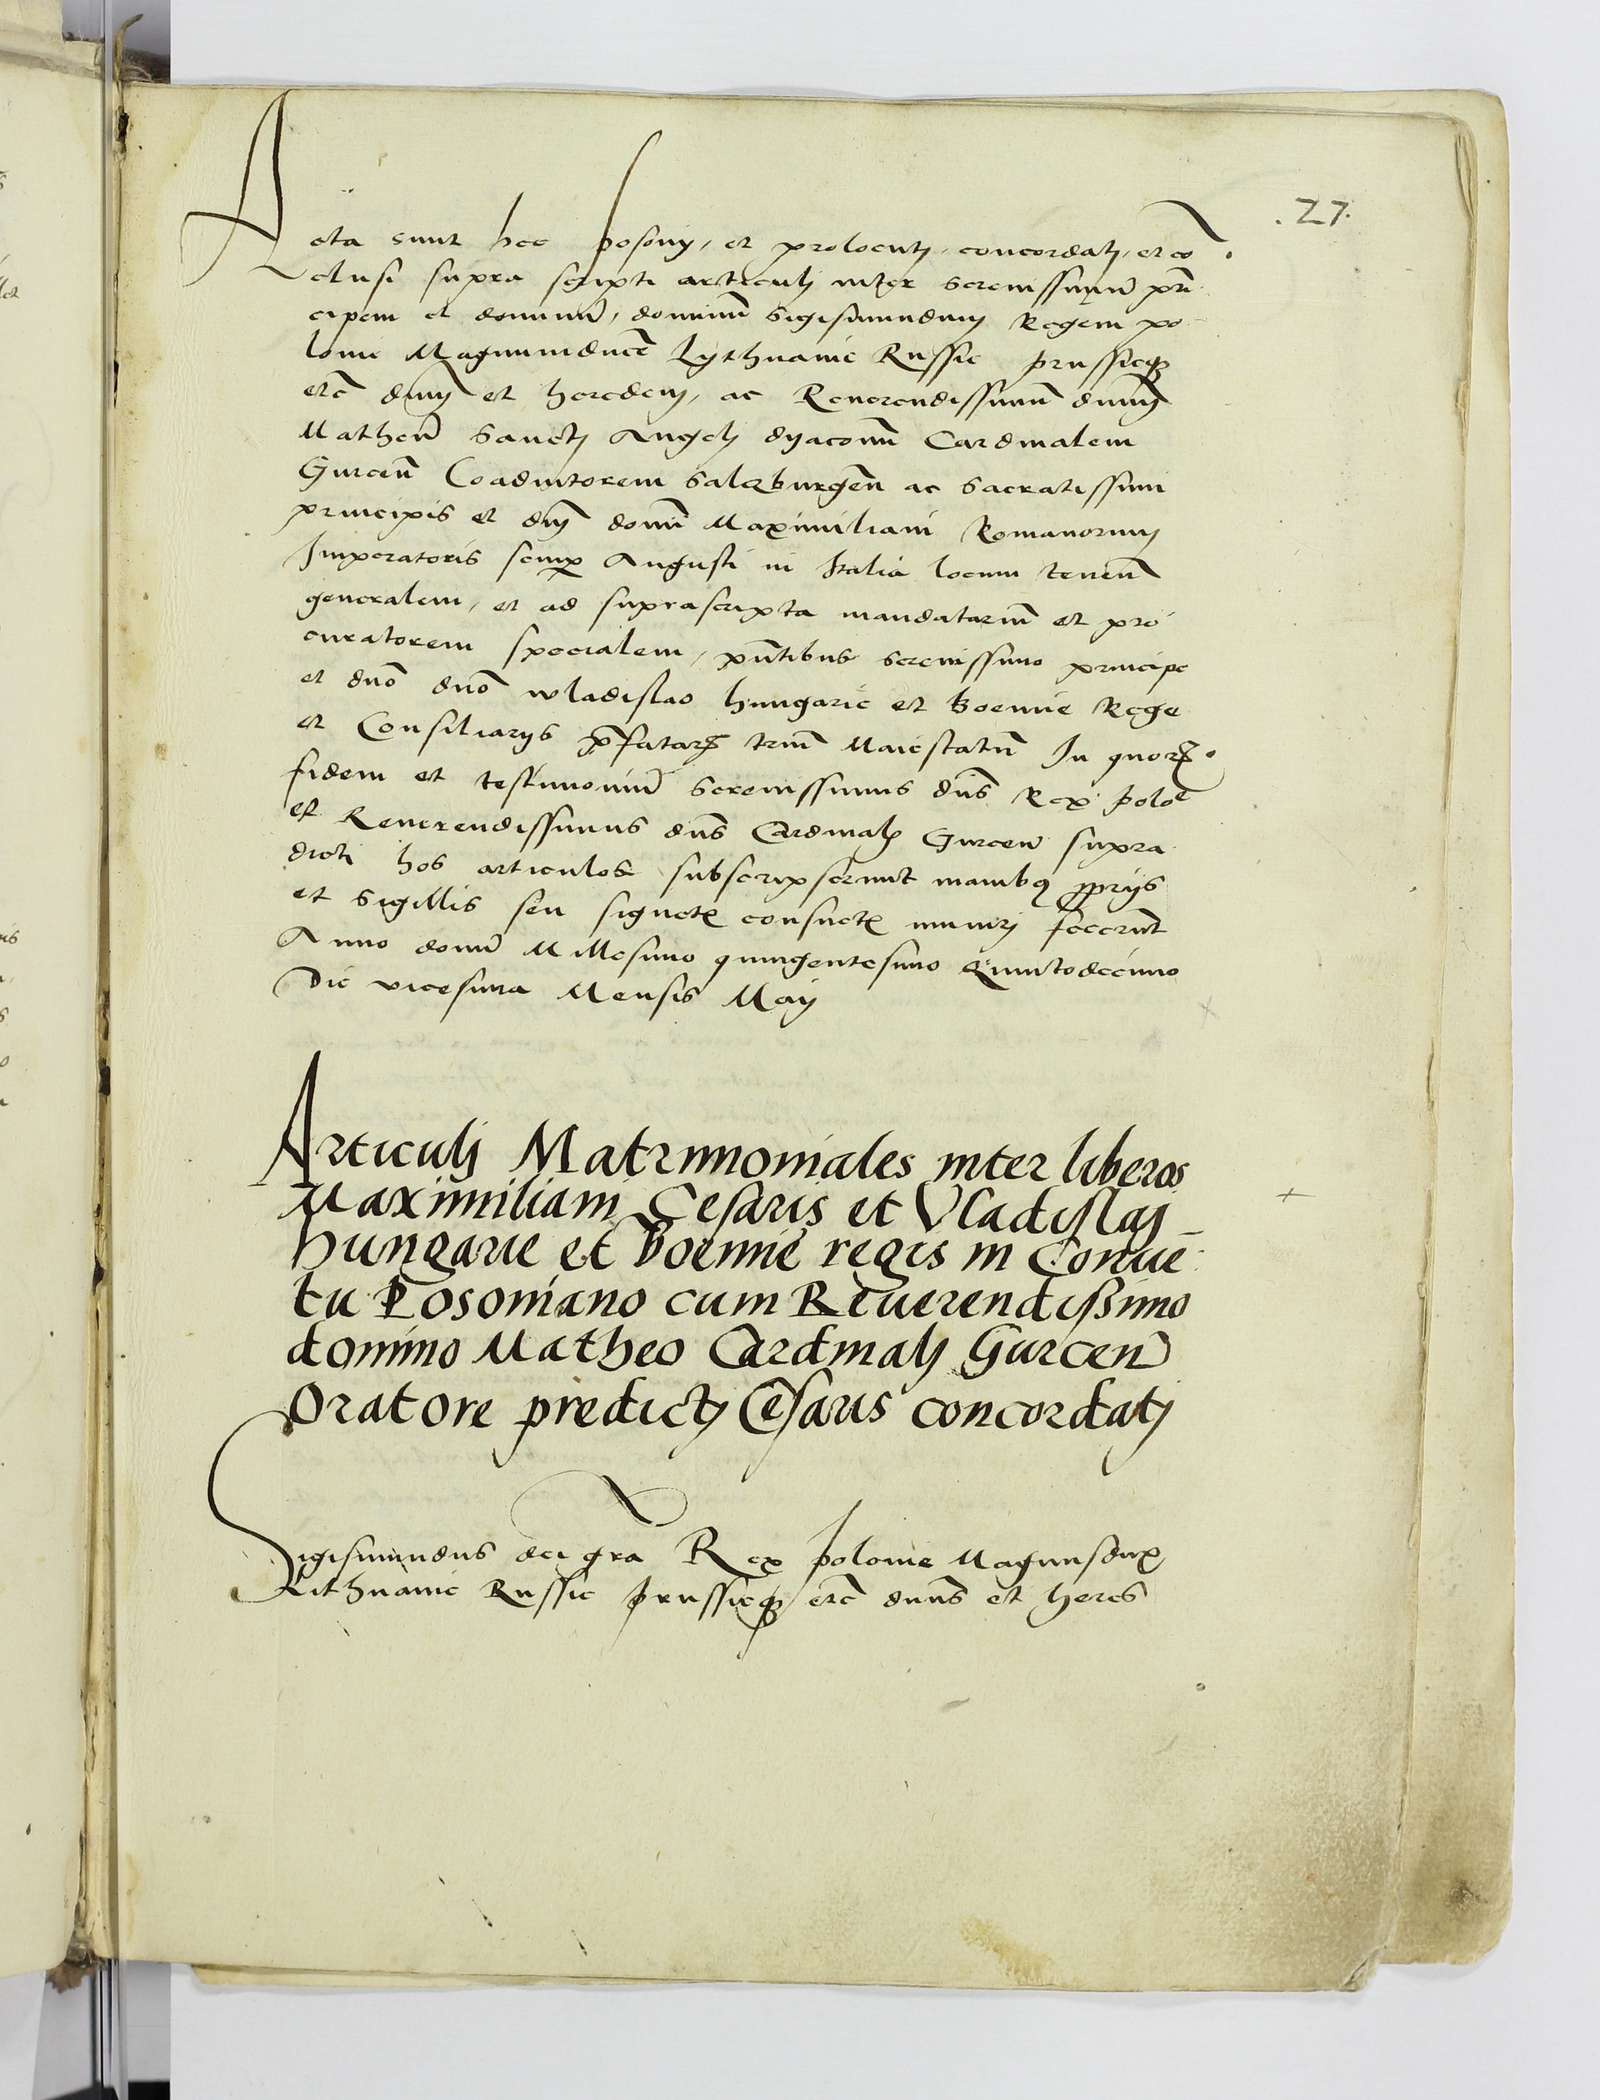 .27.
Acta sunt hec posonij, et prolocuti, concordati, et co̅
clusi supra scripti articuli inter serenissimu̅ pri̅
cipem et dominu̅, dominu̅ Sigismundum Regem po
lonie Magnumduce̅ Lythuanie Russie prussieq;
etc̅ dnm̅ et heredem, ac Reuerendissimum dnm̅
Matheu̅ Sancti Angeli dyaconu̅ Cardinalem
Gurcen̅ Coadiutorem Salczburgen̅ ac Sacratissimi
principis et dni̅ domi̅ Maximiliani Romanorum
Imperatoris semp̲ Augusti in Italia locum tenen̅
generalem, et ad suprascripta mandatariu̅ et pro
curatorem specialem, pn̅tibus serenissimo principe
et dno̅ dno̅ wladislao hungarie et Boemie Rege
et Consiliarijs p̅fatarꝝ triu̅ Maiestatu̅ In quorꝝ
fidem et testimoniu̅ Serenissimus dns̅ Rex polo̅e
et Reuerendissimus dns̅ Cardinalis Gurcen̅ supra
dicti hos articulos subscripserunt manibꝯ p̲prijs
et sigillis seu signetꝭ consuetꝭ muniri fecerunt
Anno domi̅ Millesimo quingentesimo Quintodecimo
Die vicesima Mensis Maij
Articulj Matrimoniales inter liberos
Maximiliani Cesaris et Vladislaj
hungarie et Boemie regis in Conue̅
tu Posoniano cum Reuerendissimo
domino Matheo Cardinalj Gurcen̅
Oratore predictj Cesaris concordatj
Sigismundus dei gra̅ Rex polonie Magnusdux
Lithuanie Russie prussieq; etc̅ dnns̅ et heres